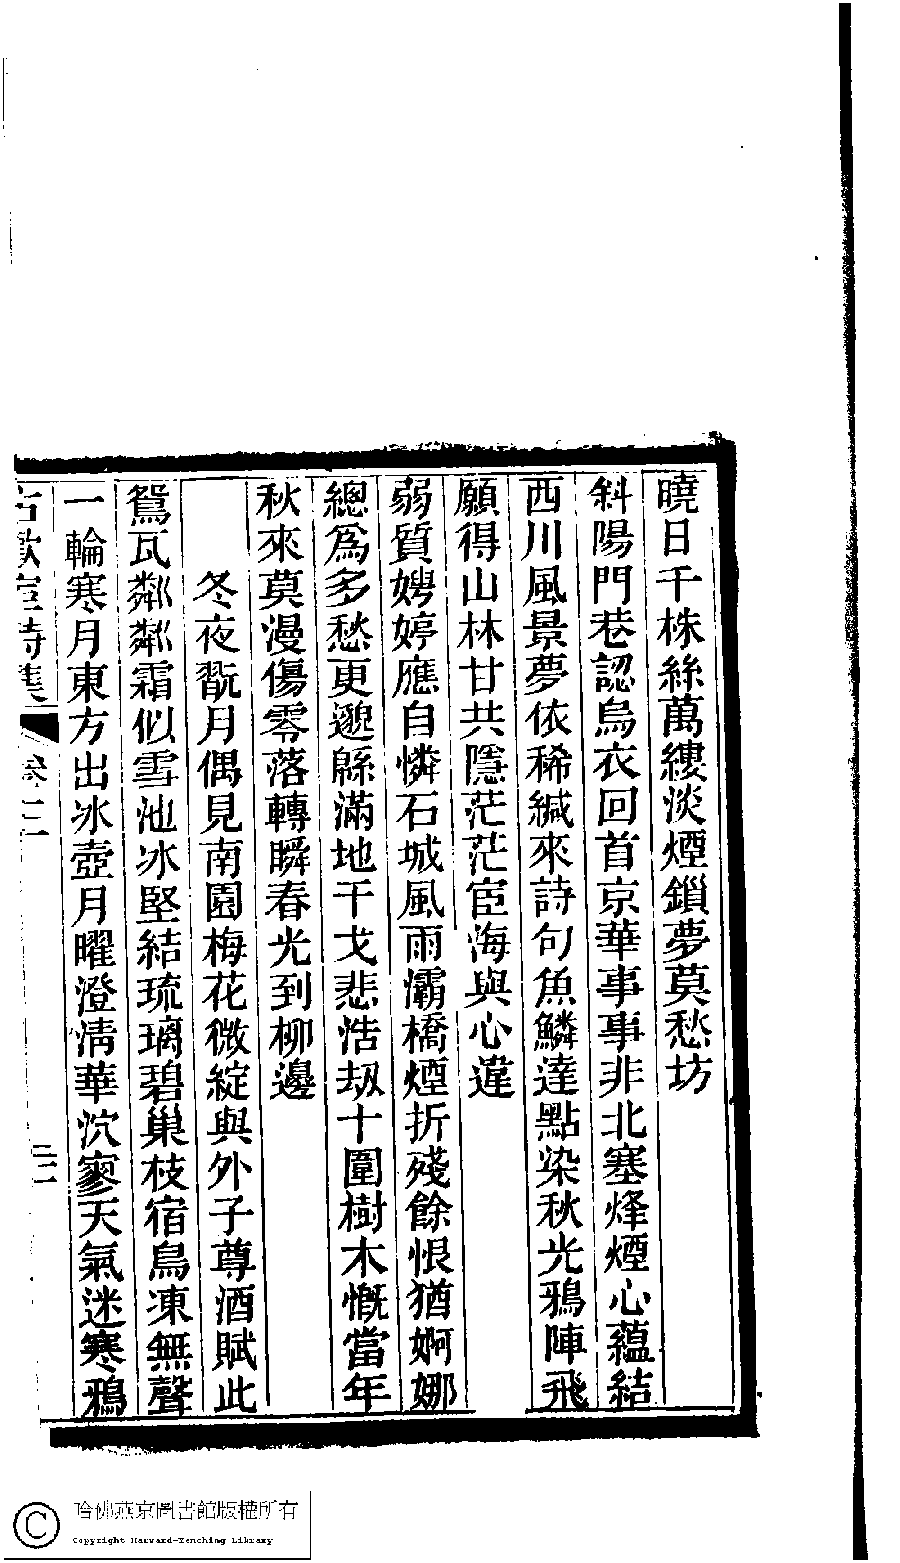 曉日千株絲萬縷淡煙鎖夢莫愁坊
斜陽門巷認烏衣回首京華事事非北塞烽煙心蘊結
西川風景夢依稀緘來詩句魚鱗達點染秋光鴉陣飛
願得山林甘共隱茫茫宦海與心違
弱質娉婷應自憐石城風雨灞橋煙折殘餘恨猶婀娜
總爲多愁更邈緜滿地干戈悲浩劫十圍樹木慨當年
秋來莫漫傷零落轉瞬春光到柳邊
冬夜翫月偶見南園梅花微綻與外子尊酒賦此
鴛瓦粼粼霜似雪池冰堅結琉璃碧巢枝宿鳥凍無聲
一輪寒月東方出冰壺月曜澄淸華泬寥天氣迷寒鴉
古歡室詩集 卷二 二
哈佛燕京圖書館版權所有
Copyright Harvard-Yenching Library